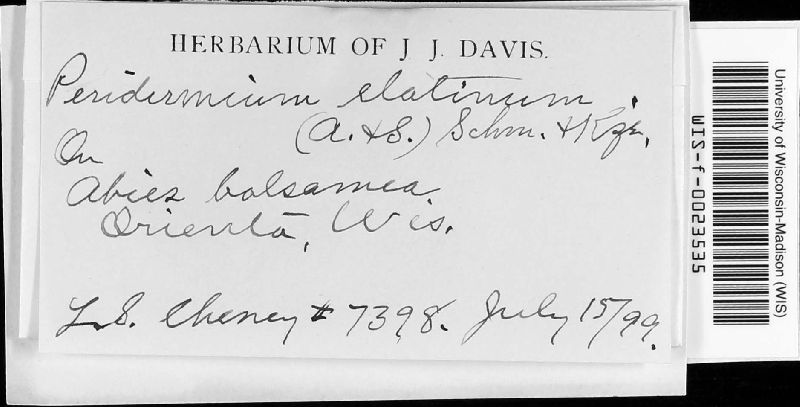 HERBARIUM OF J. J. DAVIS.
Peridermium elatinum.
(A. & S.) Schm. & Kze.
On
Abies balsamea
Orienta, Wis.
L. S. Cheney # 7398. July 15/99.
WIS-f-0023535
University of Wisconsin-Madison (WIS)